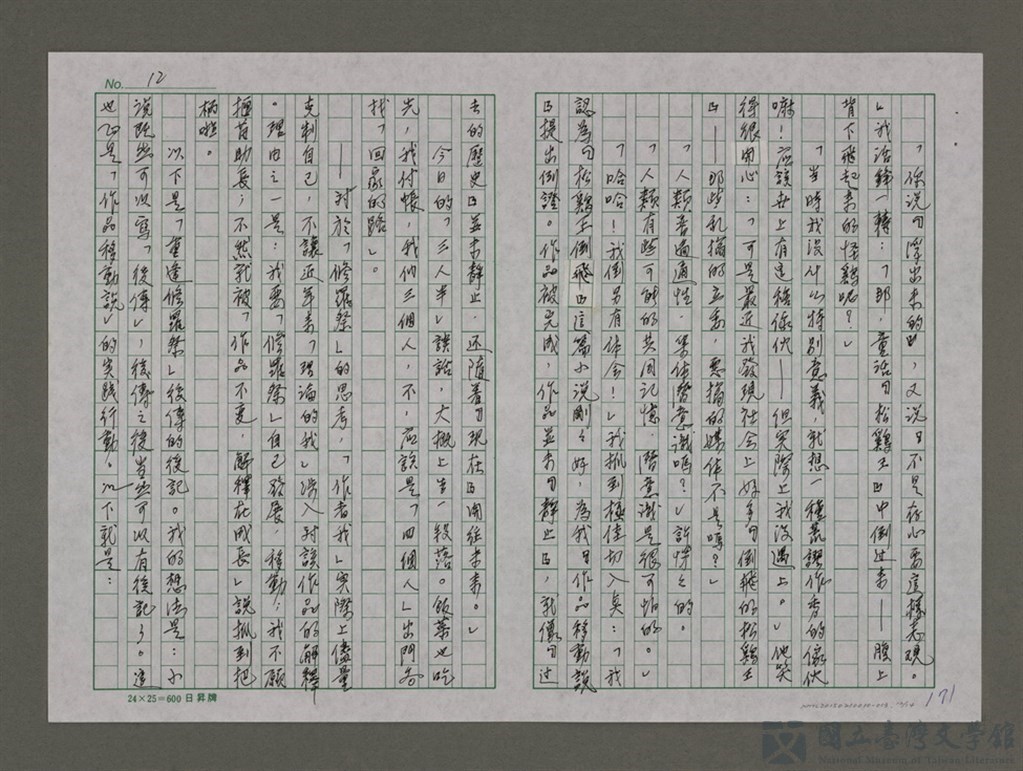 No. 12
「你說『浮出來的』,又說『不是存心要這樣表現。
』我話鋒一轉:「那,童話『松鷄王』中倒過來——腹上
背下飛起來的怪鷄呢?」
「当時我沒什么特別意義,就想一種荒謬作秀的傢伙
嘛!应該世上有這種傢伙——但实際上我沒遇上。」他笑
得很開心:「可是最近我發現社会上好多『倒飛的松鷄王
』——那些乱搞的立委,惡搞的媒体不是嗎?」
「人類普遍通性,集体潛意識嗎?」訢悖悖的。
「人類有些可能的共同記憶,潛意識是很可怕的。」
「哈哈!我倒另有体会!」我抓到極佳切入点:「我
認為『松鷄王倒飛』這篇小說剛剛好,為我『作品移動說
』提出例證。作品被完成,作品並未『靜止』,就像『过
去的歷史』並未靜止,还隨着『現在』開往未來。」
今日的「三人半」談話,大概上告一段落。飯菜也吃
光,我付帳,我们三個人,不,应該是「四個人」出門各
找「回家的路」。
——对於「修羅祭」的思考,「作者我」实際上儘量
克制自己,不讓近年來「理論的我」涉入对該作品的解釋
。理由之一是:我要「修羅祭」自己發展,移動;我不願
揠苗助長;不然就被「作品不变,解釋在成長」說抓到把
柄啦。
以下是「重逢修羅祭」後傳的後記。我的想法是:小
說既然可以寫「後傳」,後傳之後当然可以有後記了。這
也正是「作品移動說」的实践行動。以下就是:
24×25=600 日昇牌
171
國立臺灣文學館
National Museum of Taiwan Literature